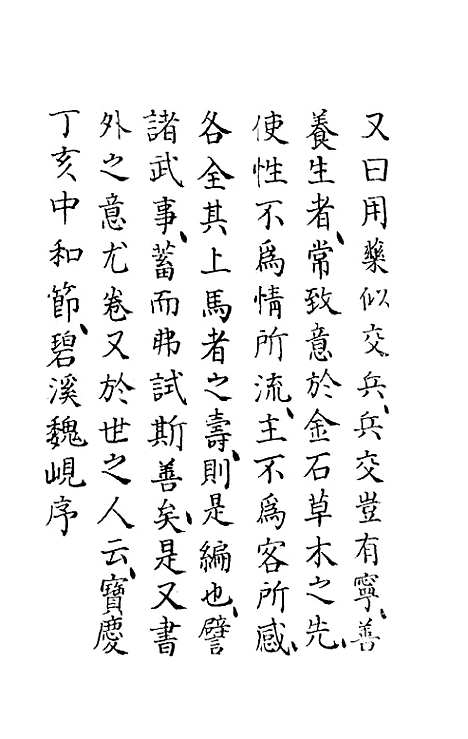 又曰用藥似交兵、兵交豈有寧、善
養生者、常致意於金石草木之先、
使性不爲情所流、主不爲客所惑、
各全其上焉者之壽、則是編也、譬
諸武事、蓄而弗試斯善矣、是又書
外之意尤卷又於世之人云、寶慶
丁亥中和節、碧溪魏峴序